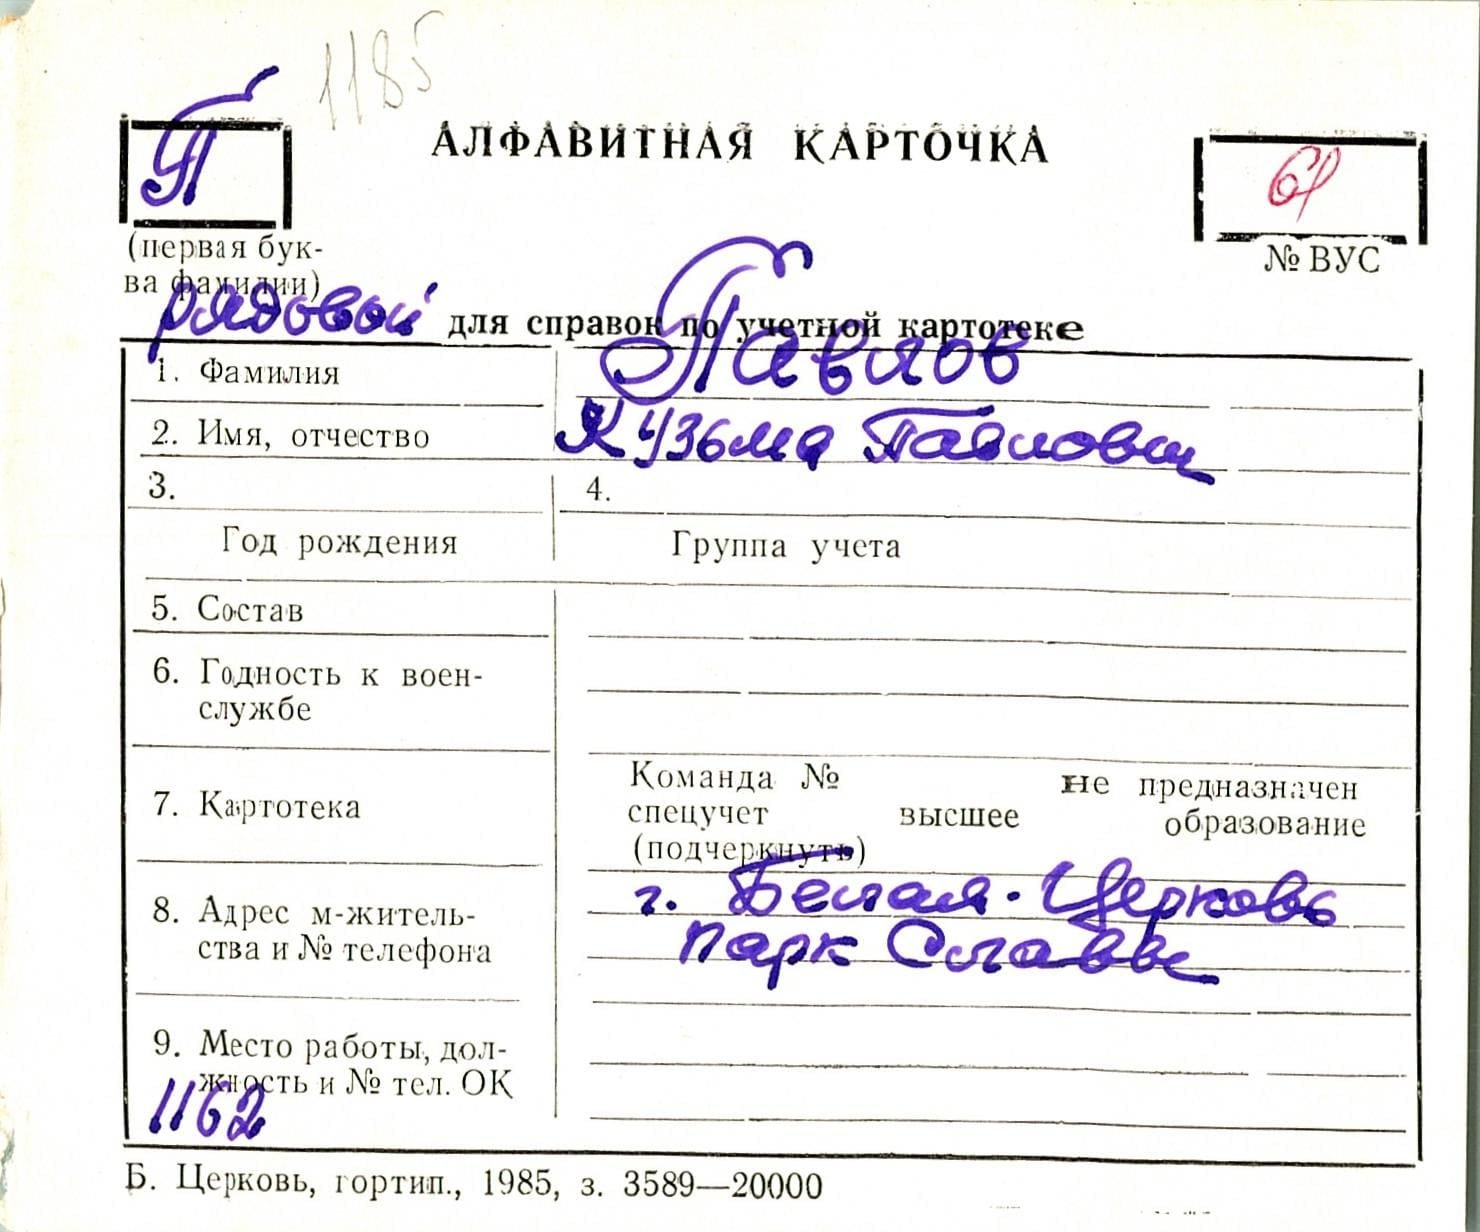 1185
П
АЛФАВИТНАЯ КАРТОЧКА
61
(первая бук-
ва фамилии)
№ ВУС
рядовой для справок по учетной картотеке
1. Фамилия Павлов
2. Имя, отчество Кузьма Павлович
3. 4.
Год рождения Группа учета
5. Состав
6. Годность к воен-
службе
7. Картотека
Команда № не предназначен
спецучет высшее образование
(подчеркнуть)
8. Адрес м-житель-
ства и № телефона
г. Белая-Церковь
парк Славы
9. Место работы, дол-
жность и № тел. ОК
1162
Б. Церковь, гортип., 1985, з. 3589—20000